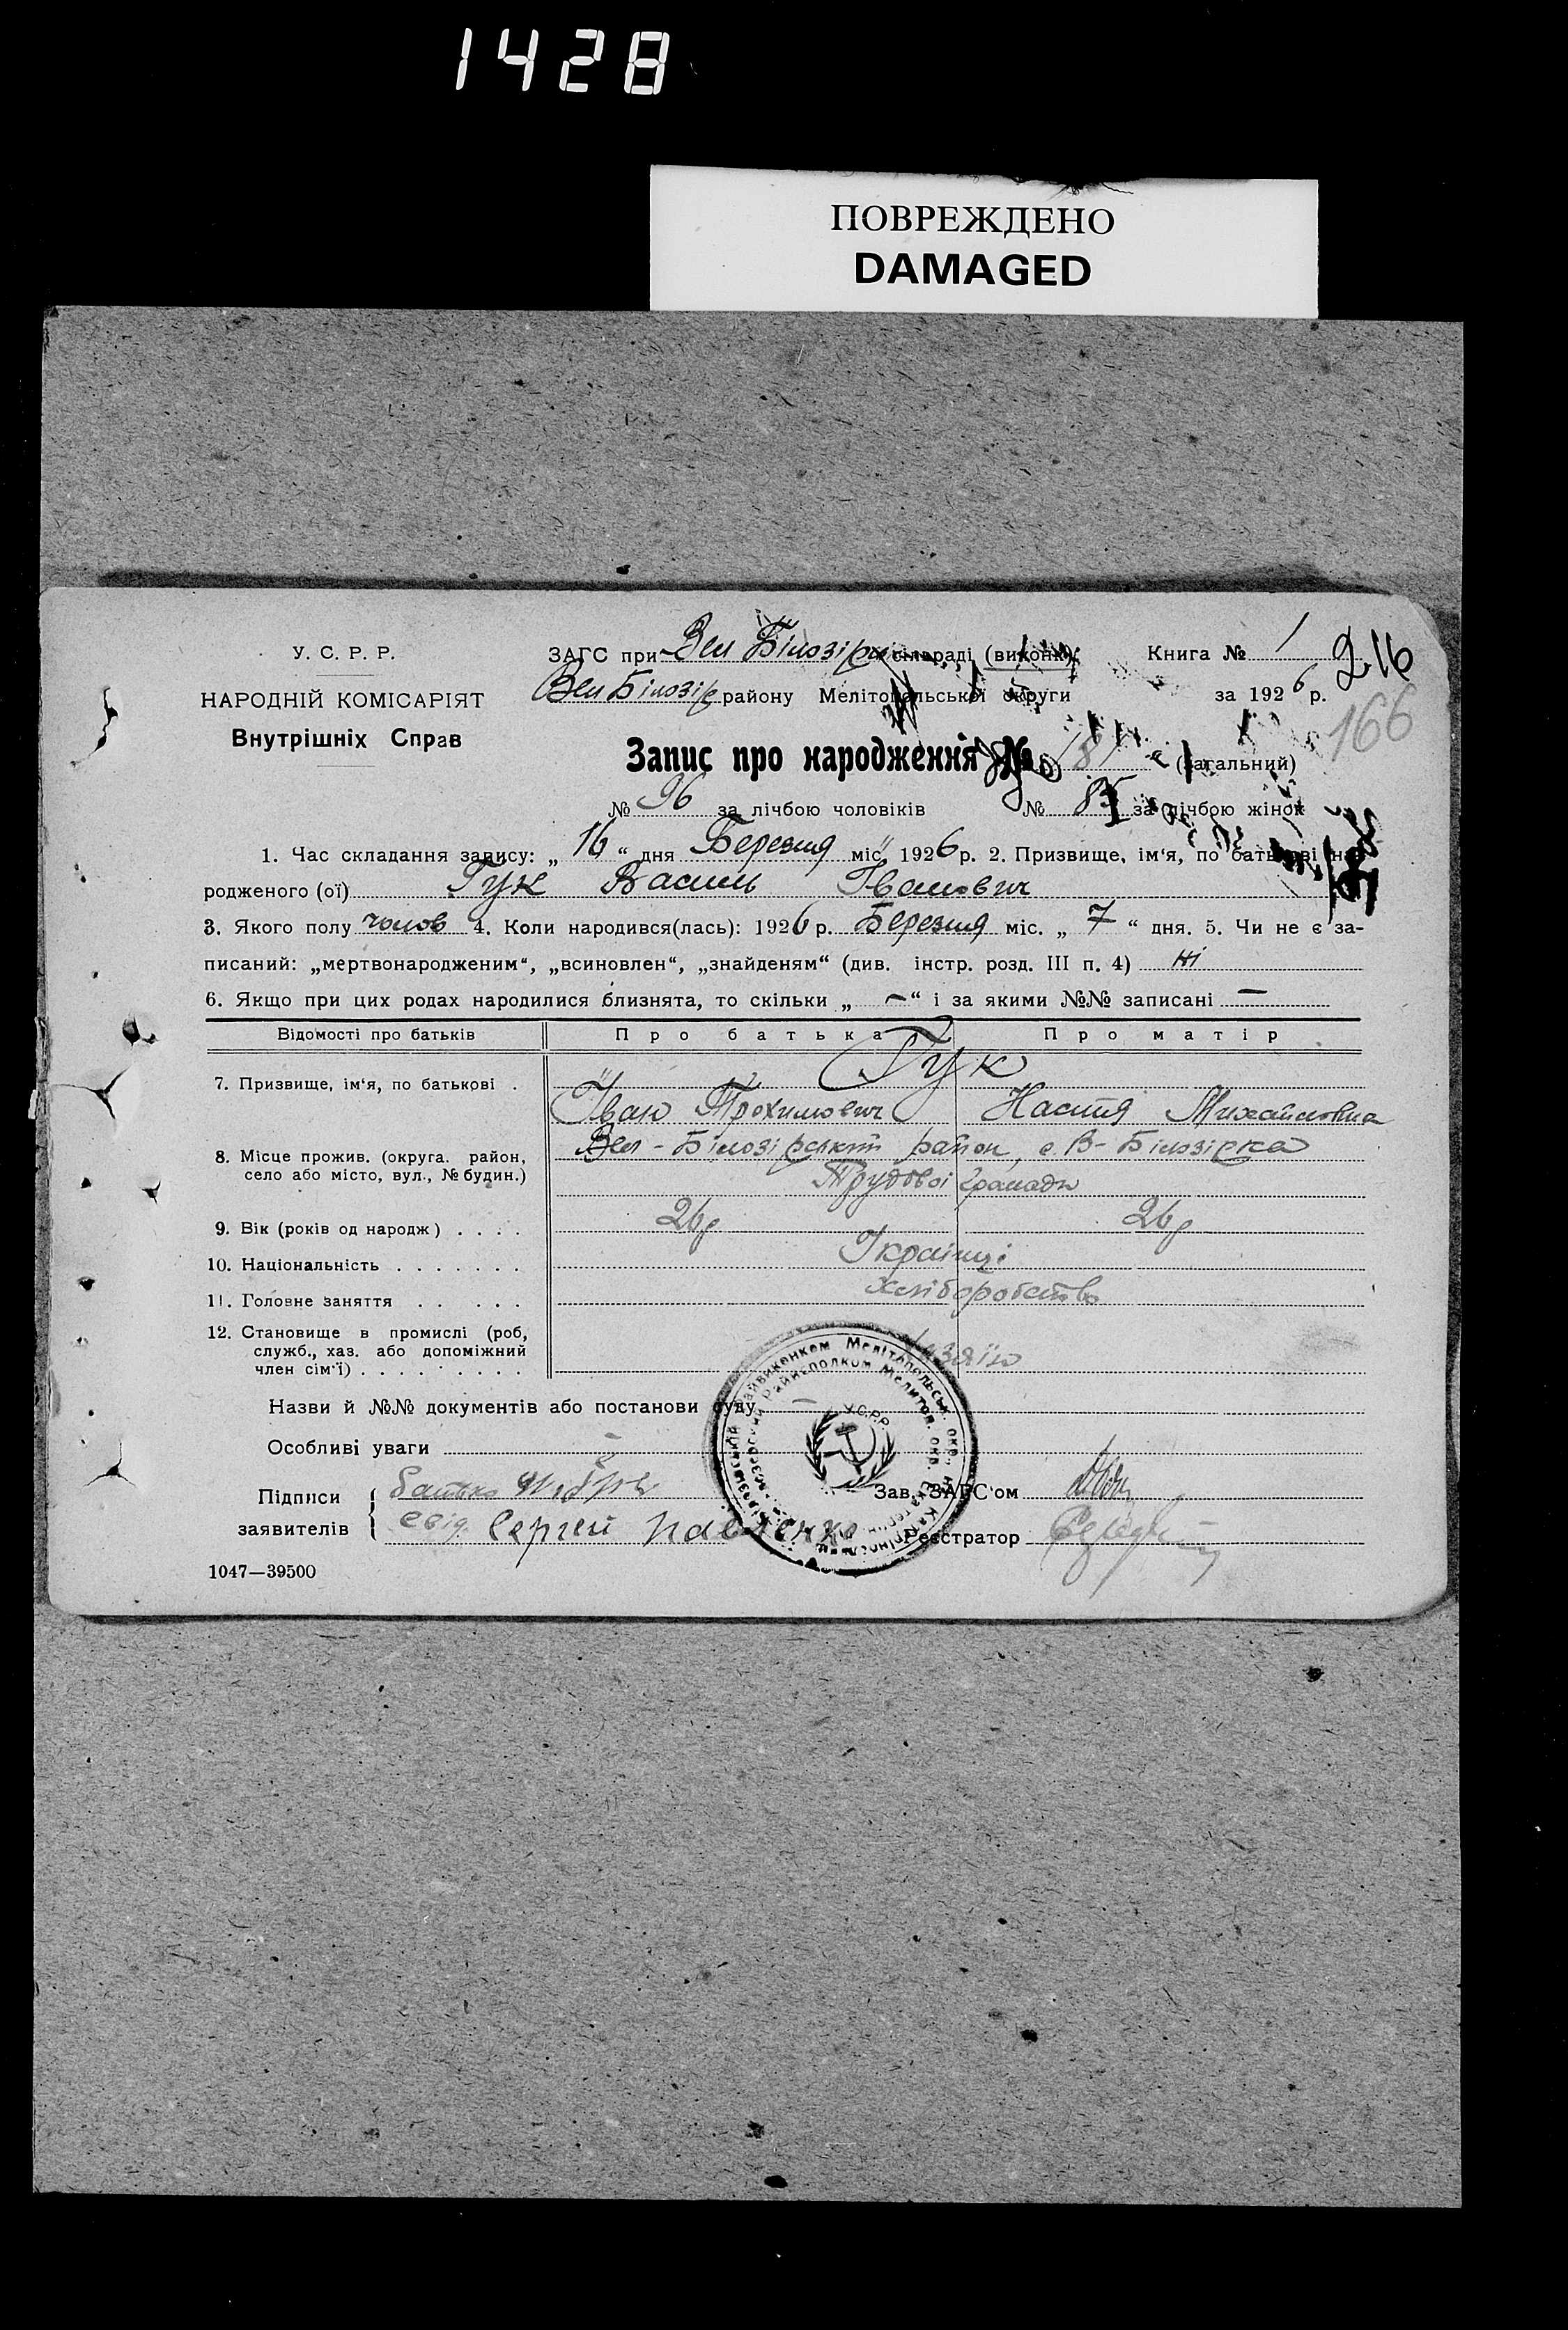 1428
ПОВРЕЖДЕНО
DAMAGED
У. С. Р. Р.
НАРОДНІЙ КОМІСАРІЯТ
Внутрішніх Справ
ЗАГС при Вел Білозірк сільраді (виконк)
Книга № 1
216
Вел Білозір району Мелітопольської округи
за 1926 р.
166
Запис про народження № 181 (загальний)
№ 96 за лічбою чоловіків № 85 за лічбою жінок
1. Час складання запису: „ 16 “ дня Березня міс. 1926 р. 2. Призвище, ім‘я, по батькові на-
родженого (ої) Гук Василь Іванович
3. Якого полу чолов 4. Коли народився(лась): 1926 р. Березня міс. „ 7 “ дня. 5. Чи не є за-
писаний: „мертвонародженим“, „всиновлен“, „знайденям“ (див. інстр. розд. III п. 4) ні
6. Якщо при цих родах народилися близнята, то скільки „ — “ і за якими №№ записані —
Відомості про батьків Про батька Про матір
Гук
7. Призвище, ім‘я, по батькові .
Іван Трохимович Настя Михайловна
Вел-Білозірський район, с. В-Білозірка
8. Місце прожив. (округа. район,
село або місто, вул., № будин.)
Трудової громади
9. Вік (років од народж) . . . . 26 р 26 р
10. Національність . . . . . . . Українці
11. Головне заняття . . . . . хліборобство
12. Становище в промислі (роб,
служб., хаз. або допоміжний
член сім‘ї) . . . . . . . . . хазяїн
Назви й №№ документів або постанови суду —
Особливі уваги —
У.С.Р.Р.
Підписи
заявителів
батько
свід. Сергей Павленко
Зав. ЗАГС‘ом
Реєстратор
1047—39500